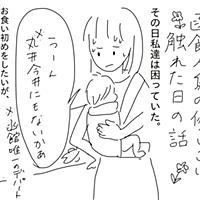 函館
触れた日の話
その日私達は困っていた。
うーん
丸井今井にもないかぁ
※函館唯一のデパート
お食い初めをしたいが、